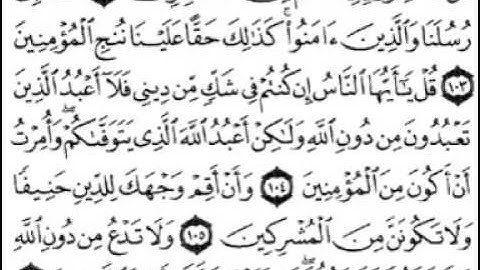 رُسُلَنَا وَالَّذِينَ ءَامَنُوا۟ كَذَٰلِكَ حَقًّا عَلَيْنَا نُنجِ الْمُؤْمِنِينَ
١٠٣ قُلْ يَـٰٓأَيُّهَا النَّاسُ إِن كُنتُمْ فِى شَكٍّ مِّن دِينِى فَلَآ أَعْبُدُ الَّذِينَ
تَعْبُدُونَ مِن دُونِ اللَّهِ وَلَـٰكِنْ أَعْبُدُ اللَّهَ الَّذِى يَتَوَفَّىٰكُمْ ۖ وَأُمِرْتُ
أَنْ أَكُونَ مِنَ الْمُؤْمِنِينَ ١٠٤ وَأَنْ أَقِمْ وَجْهَكَ لِلدِّينِ حَنِيفًا
وَلَا تَكُونَنَّ مِنَ الْمُشْرِكِينَ ١٠٥ وَلَا تَدْعُ مِن دُونِ اللَّهِ